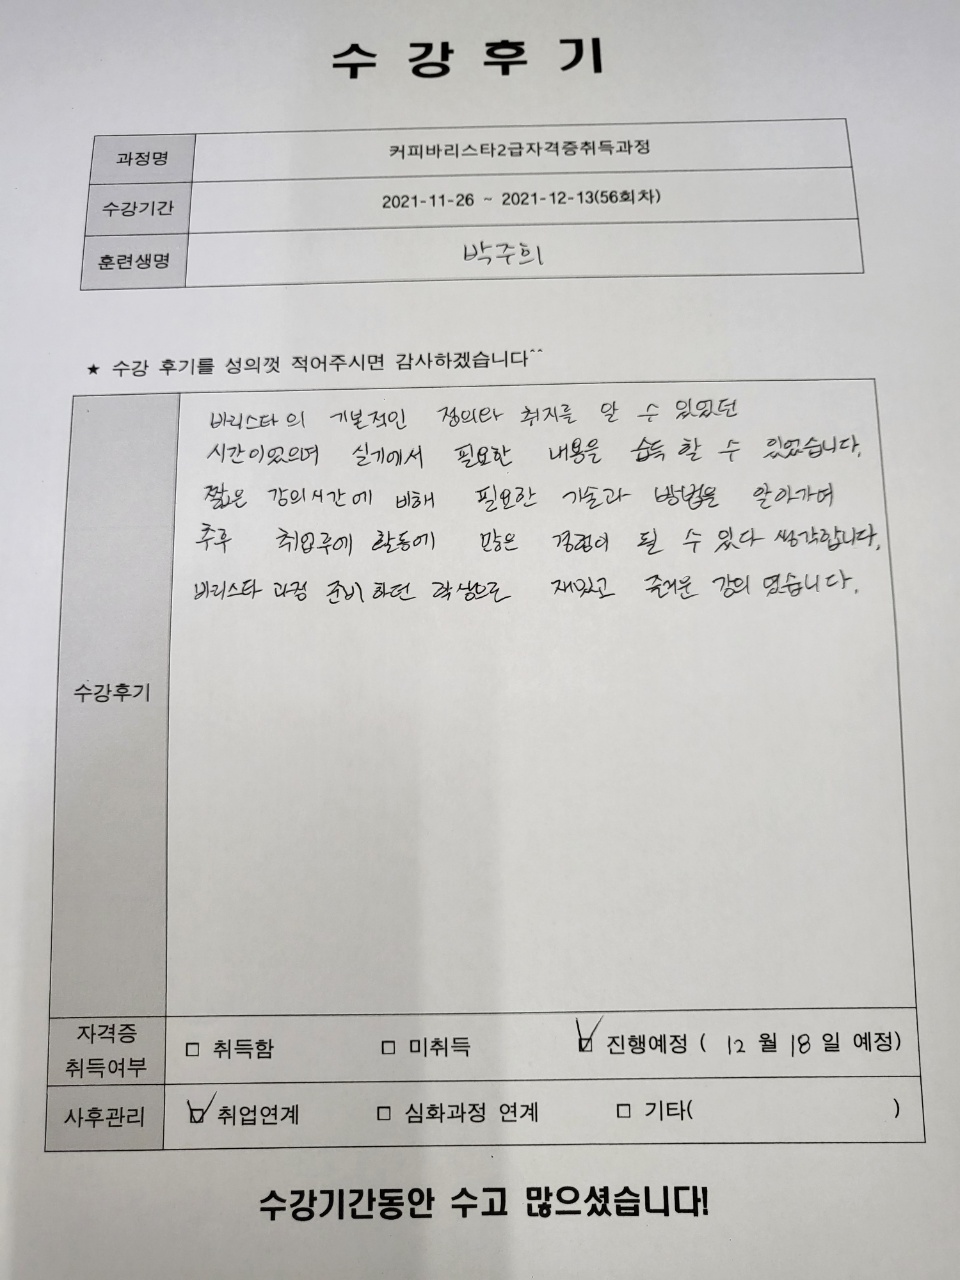 수 강 후 기
과정명 커피바리스타2급자격증취득과정
수강기간 2021-11-26 ~ 2021-12-13(56회차)
훈련생명 박주희
★ 수강 후기를 성의껏 적어주시면 감사하겠습니다^^
바리스타의 기본적인 정의와 취지를 알 수 있었던
시간이었으며 실기에서 필요한 내용을 습득 할 수 있었습니다.
짧은 강의시간에 비해 필요한 기술과 방법을 알아가며
추후 취업후에 활동에 많은 경험이 될 수 있다 생각합니다.
바리스타 과정 준비하던 학생으로 재밌고 즐거운 강의 였습니다.
수강후기
자격증 취득여부 □ 취득함 □ 미취득 ☑ 진행예정 ( 12 월 18 일 예정)
사후관리 ☑ 취업연계 □ 심화과정 연계 □ 기타( )
수강기간동안 수고 많으셨습니다!